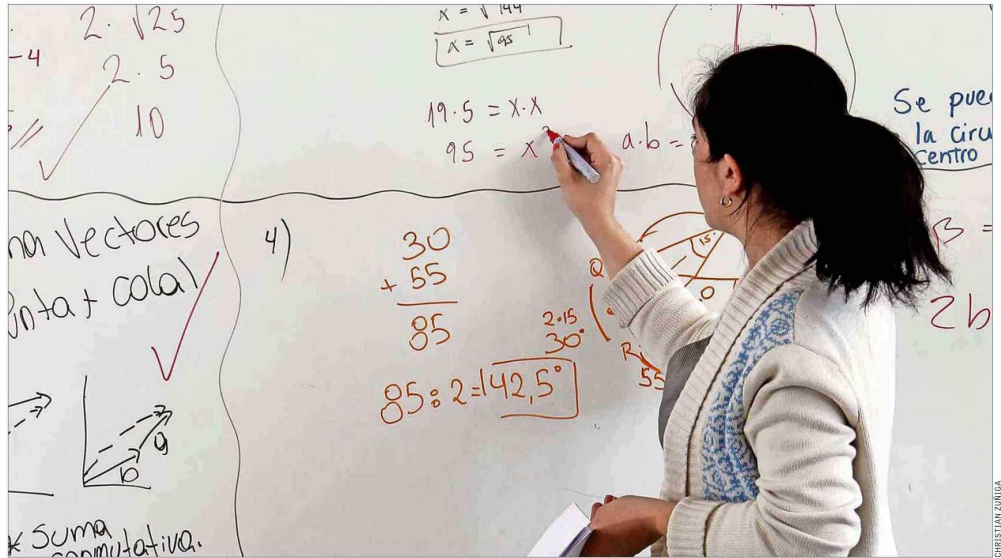 2. √25
-4
2 . 5
10
x = √144
x = √95
19.5 = x.x
95 = x²
a.b =
Se pue
la circu
centro
ma Vectores
unta + cola)
4)
30
+ 55
85
85:2=42,5°
2.15
30°
Q
R
55
15°
O
β =
2b
b
* Suma
conmutativa.
CHRISTIAN ZÚÑIGA